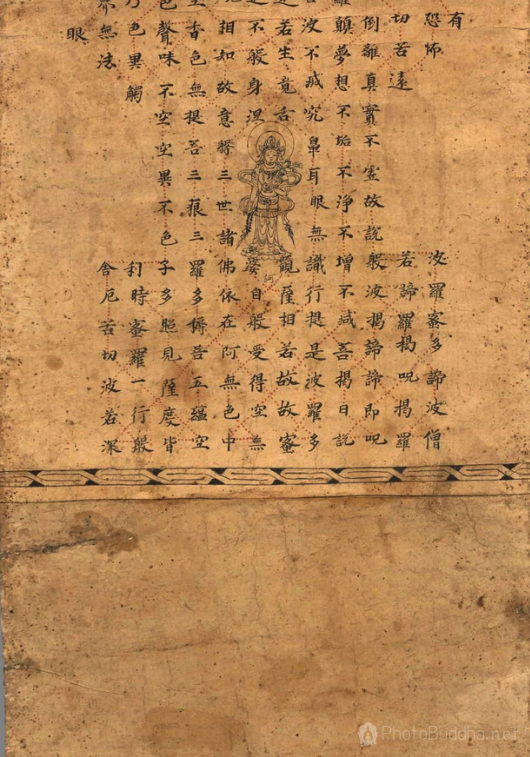 有
恐怖 波羅蜜多諦波僧
切苦遠 若諦羅揭呪揭羅
倒離真實不虛故說般波揭諦諦即呪
顛夢想不垢不淨不增不減菩揭曰説
波不減究鼻耳眼無識行提是波羅多
若生竟舌 觀薩相若故故蜜
不般身涅 婆自般受得空無
相知故意 三世諸佛依在阿無色中
香色無提菩三藐三羅多耨菩五蘊空
色聲味不空空異不色子多照見薩度皆
乃色異觸 利時蜜羅一行般
界無法 舍厄苦切波若深
眼
PhotoBuddha.net